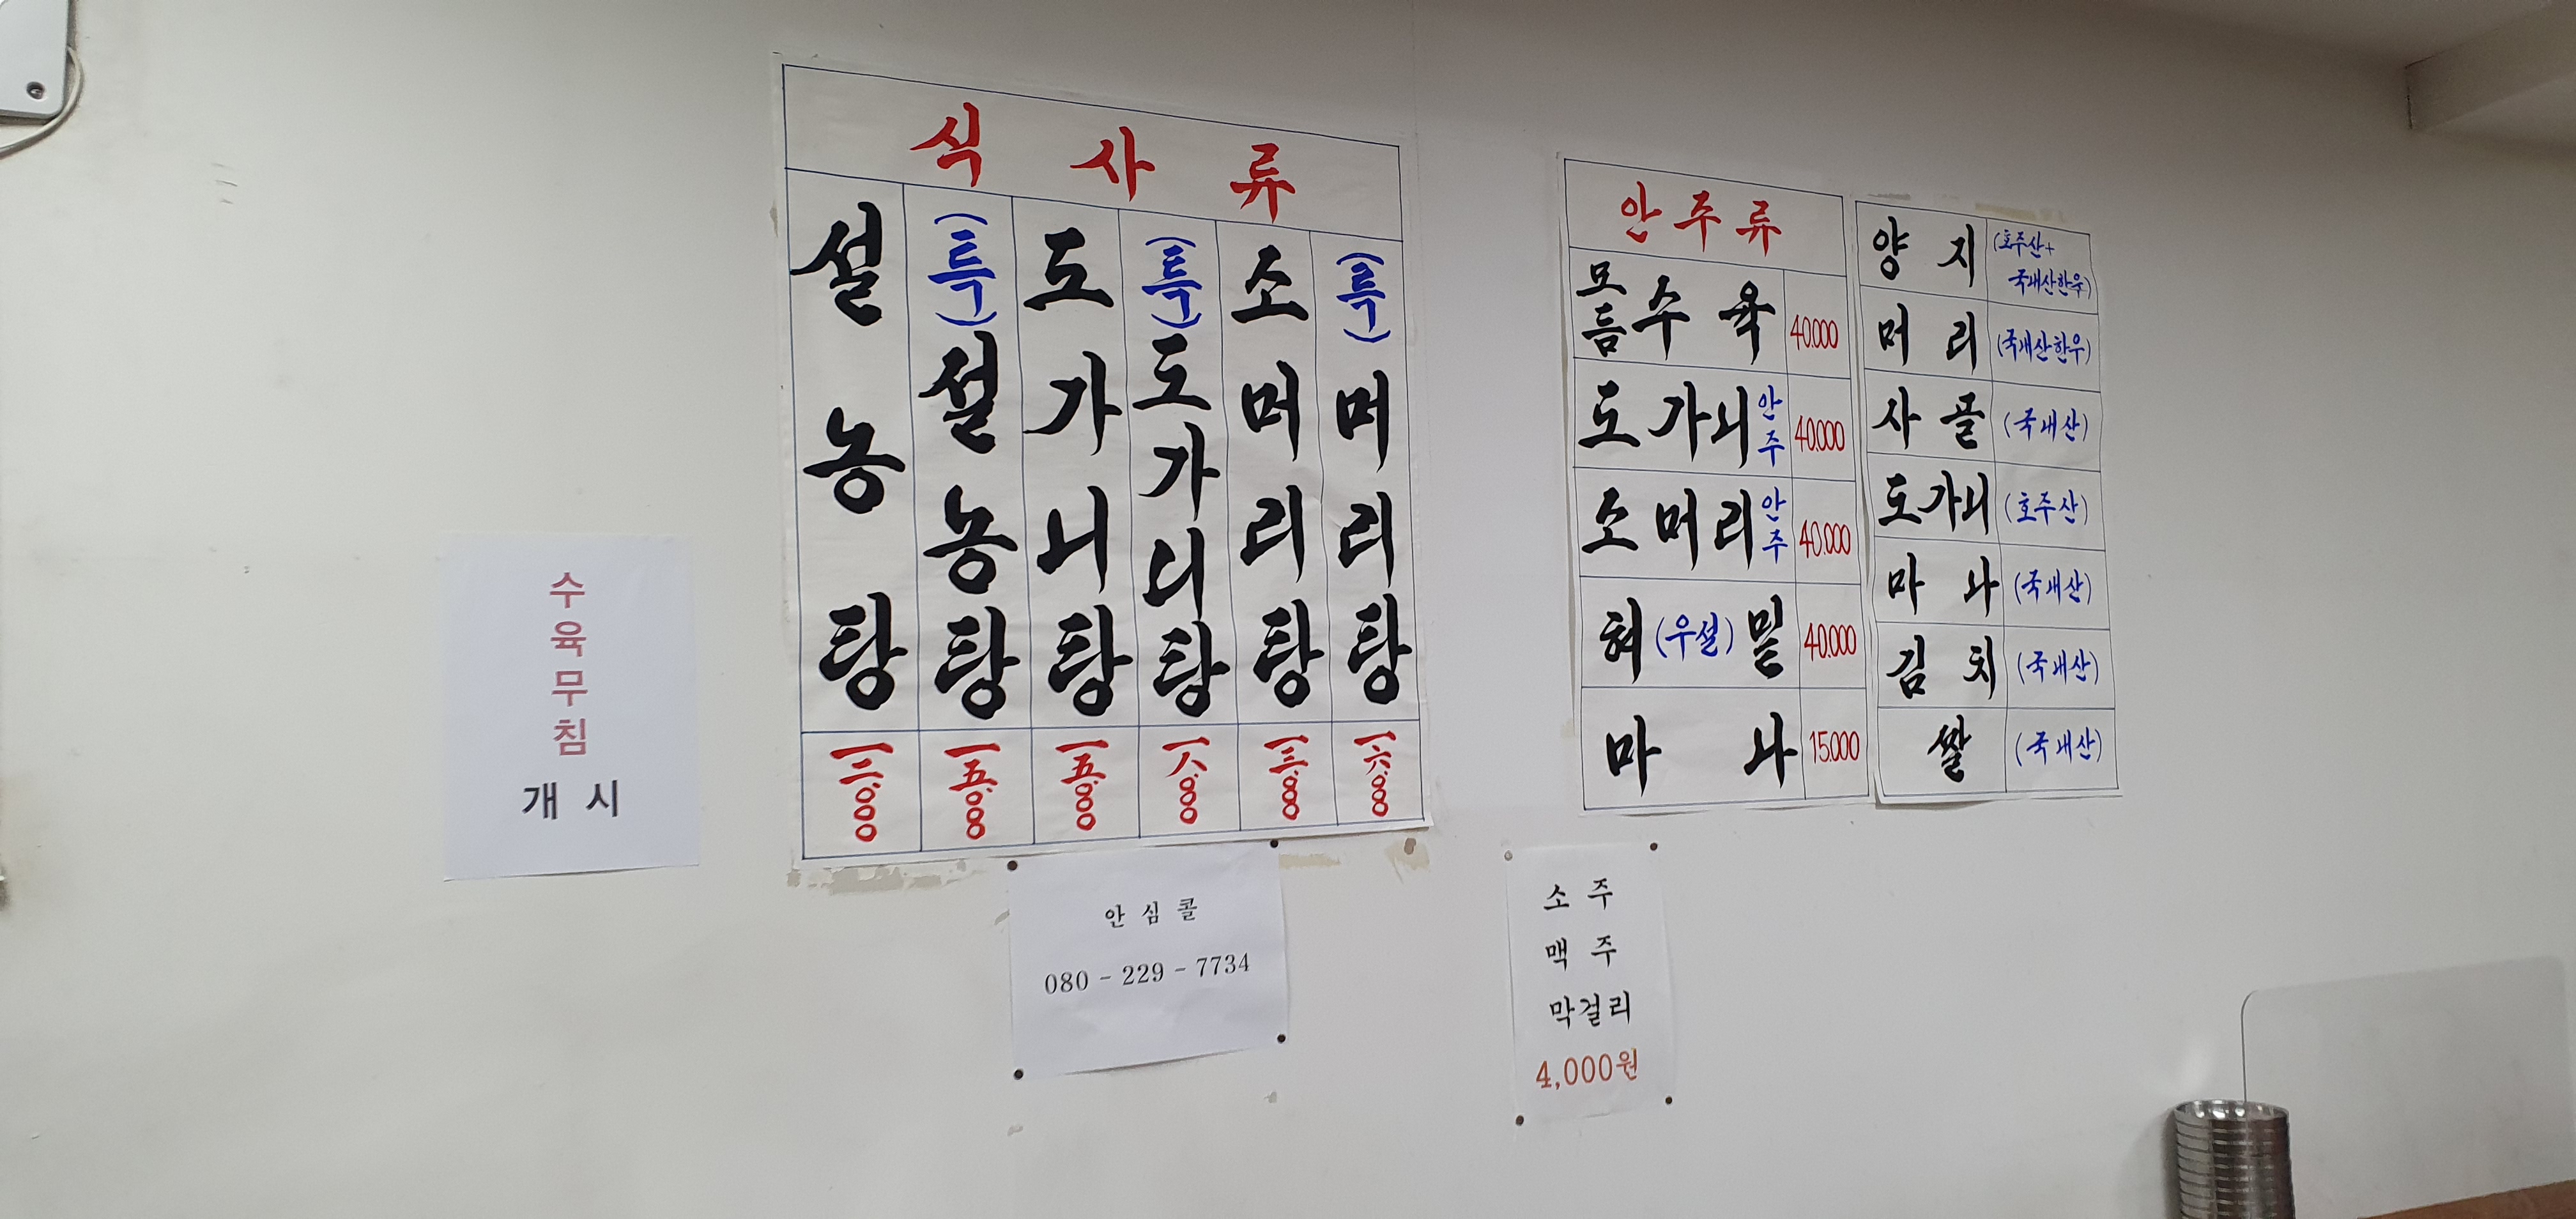 수
육
무
침
개 시
식 사 류
설농탕 一二0.000
(특)설농탕 一五0.000
도가니탕 一五0.000
(특)도가니탕 一八.000
소머리탕 一三.000
(특)머리탕 一六.000
안심콜
080-229-7734
안주류
모듬수육 40.000
도가니안주 40.000
소머리안주 40.000
혀(우설)밑 40.000
마나 15.000
양지 (호주산+
국내산한우)
머리 (국내산한우)
사골 (국내산)
도가니 (호주산)
마나 (국내산)
김치 (국내산)
쌀 (국내산)
소주
맥주
막걸리
4,000원